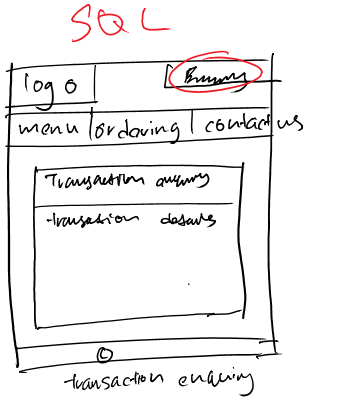 SQL
logo
menu ordering contact us
Transaction enquiry
transaction details
©
transaction enquiry